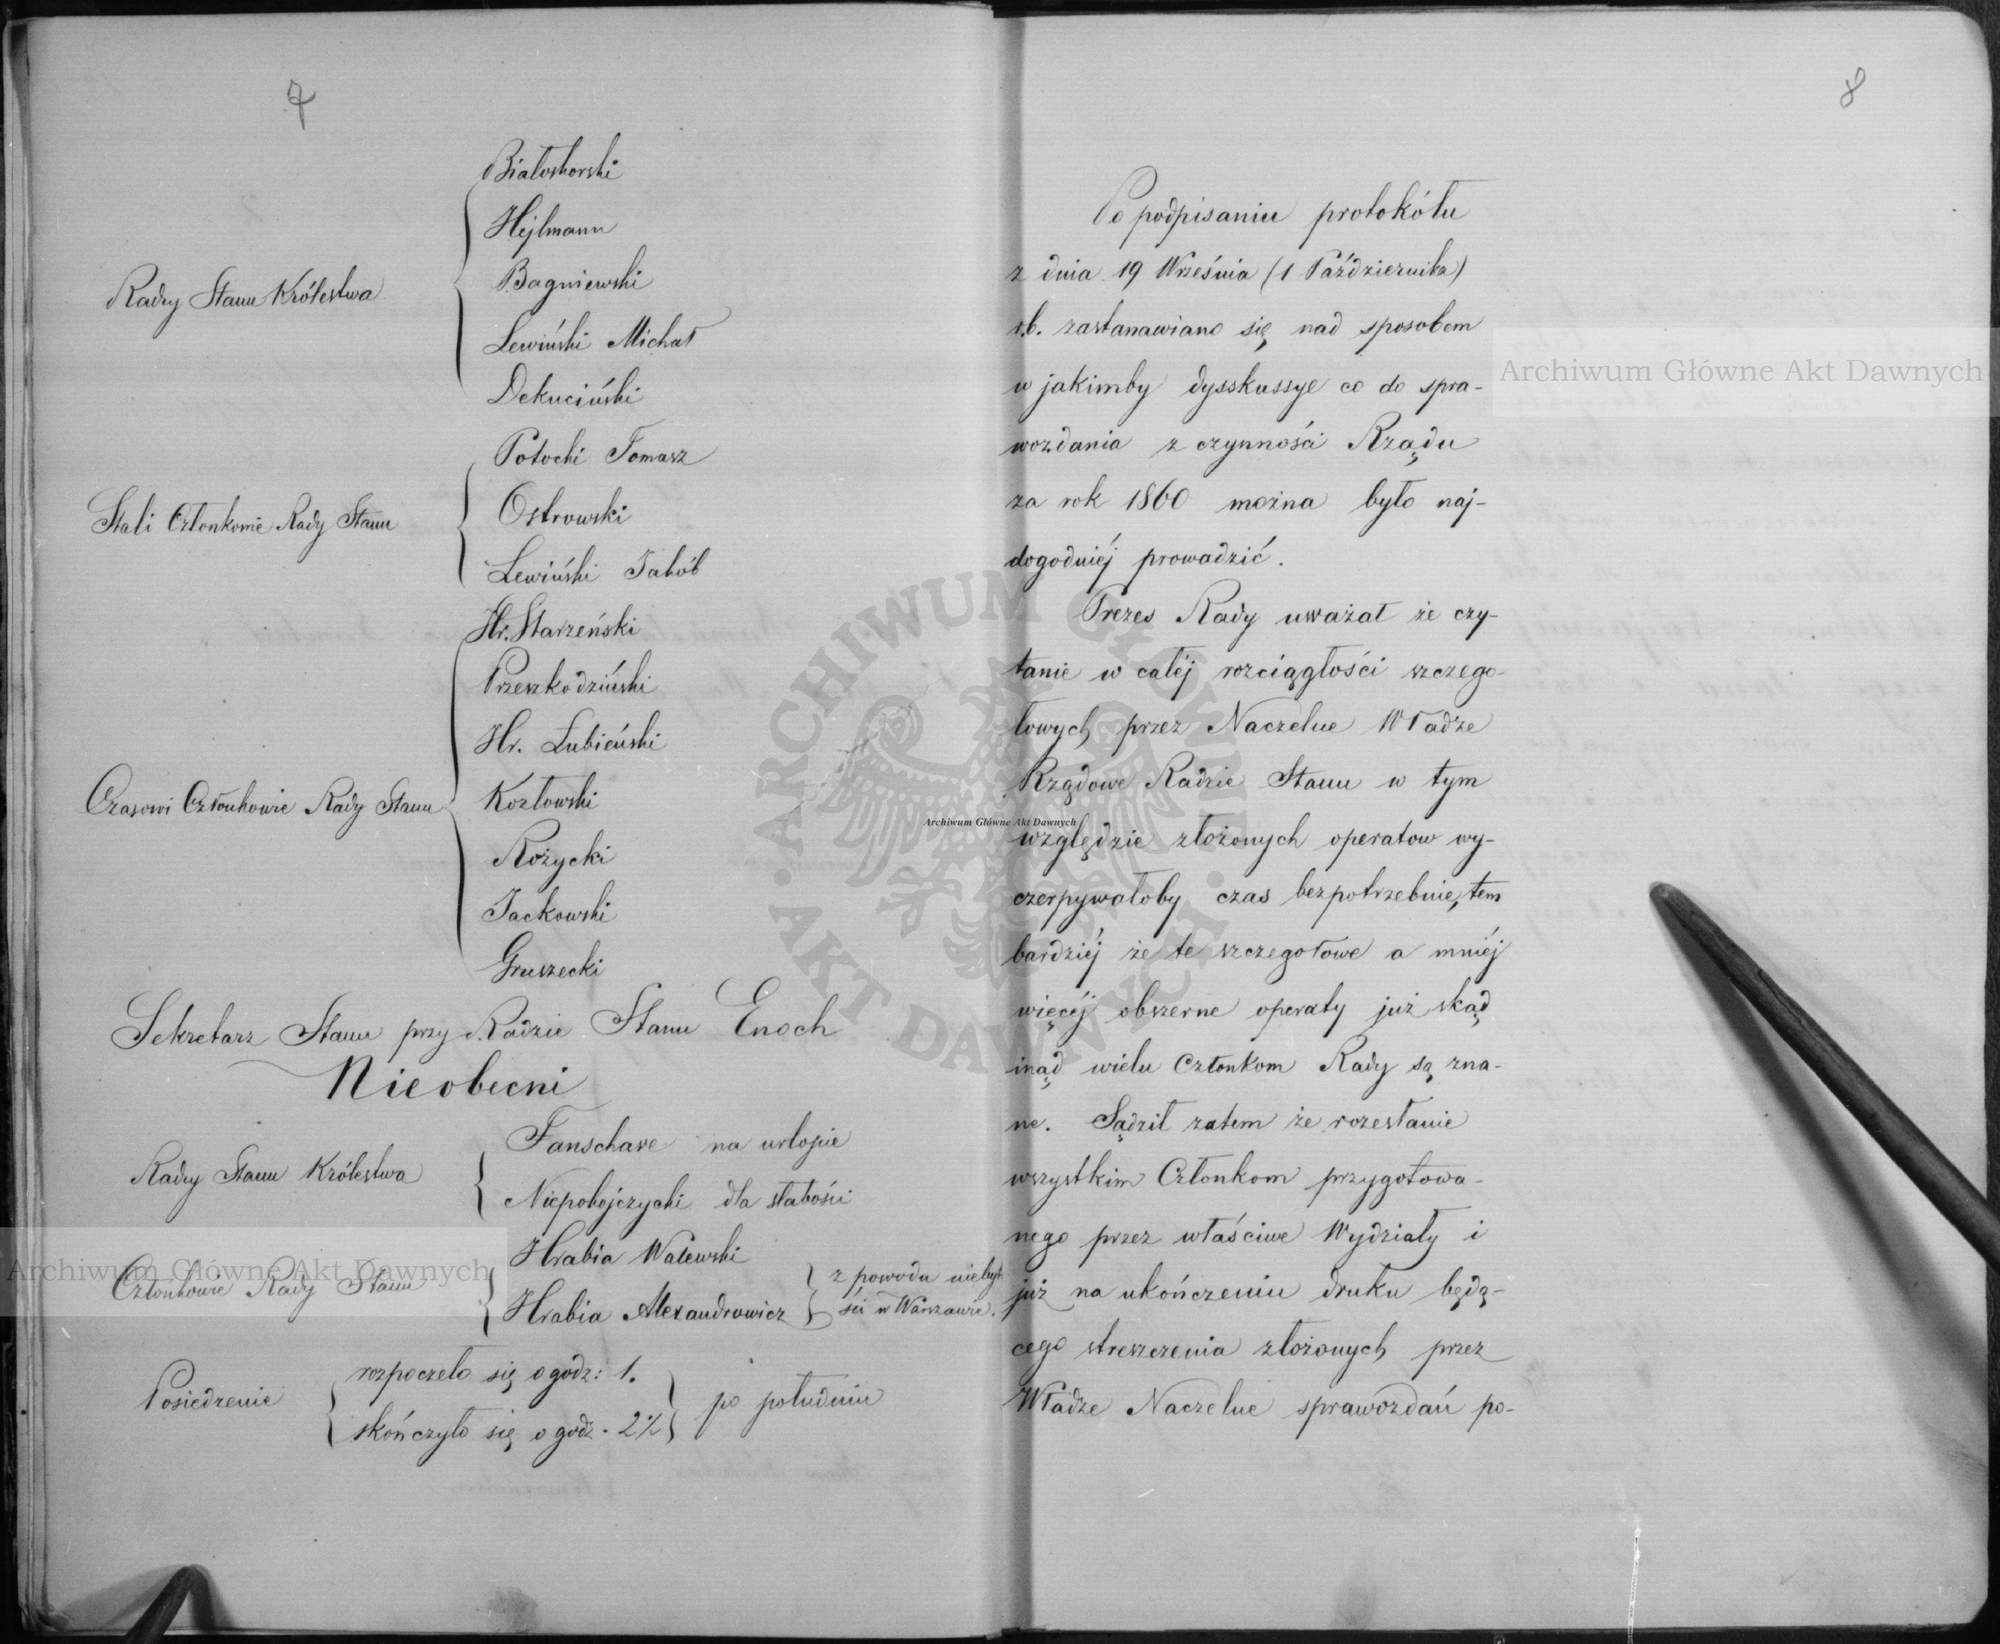 7
Białoskorski
Hejlmann
Radcy Stanu Królestwa
Bagniewski
Lewiński Michał
Dekuciński
Potocki Tomasz
Stali Członkowie Rady Stanu
Ostrowski
Lewiński Jakób
Hr. Starzeński
Przeszkodziński
Hr. Łubieński
Czasowi Członkowie Rady Stanu
Kozłowski
Rożycki
Jackowski
Gruszecki
Sekretarz Stanu przy Radzie Stanu Enoch
Nieobecni
Radcy Stanu Królestwa
Fanschave na urlopie
Niepokojczycki dla słabości
Członkowie Rady Stanu
Hrabia Walewski
Hrabia Alexandrowicz
z powodu niebyt-
ści w Warszawie.
Posiedzenie
rozpoczeło się o godz: 1.
skończyło się o godz. 2½
po południu
8
Po podpisaniu protokółu
z dnia 19 Września (1 Października)
r.b. zastanawiano się nad sposobem
w jakimby dysskussye co do spra-
wozdania z czynności Rządu
za rok 1860 można było naj-
dogodniéj prowadzić.
Prezes Rady uważał że czy-
tanie w całéj rozciągłości szczego-
łowych przez Naczelne Władze
Rządowe Radzie Stanu w tym
względzie złożonych operatow wy-
czerpywałoby czas bezpotrzebnie, tem
bardziéj że te szczegołowe a mniéj
więcéj obszerne operaty już skąd
inąd wielu Członkom Rady są zna-
ne. Sądził zatem że rozesłanie
wszystkim Członkom przygotowa-
nego przez właściwe Wydziały i
już na ukończeniu druku będą-
cego streszczenia złożonych przez
Władze Naczelne sprawozdań po-
Archiwum Główne Akt Dawnych
Archiwum Główne Akt Dawnych
Archiwum Główne Akt Dawnych
ARCHIWUM GŁÓWNE AKT DAWNYCH